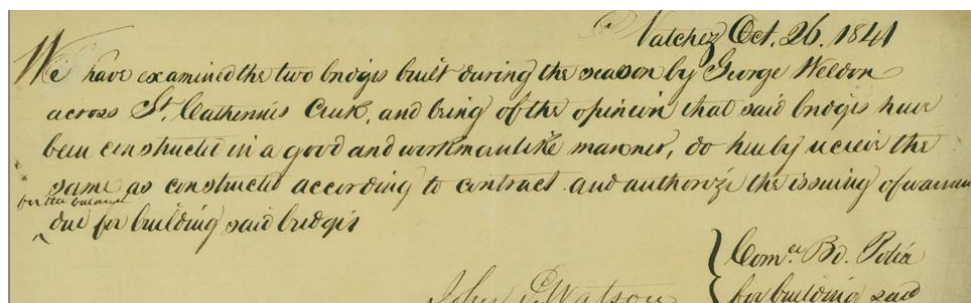 Natchez Oct. 26. 1841
We have examined the two bridges built during the season by George Weldon
across St. Catherines Creek, and being of the opinion that said bridges have
been constructed in a good and workmanlike manner, do hereby receive the
same as constructed according to contract and authorize the issuing of
for the balance
due for building said bridges
Comee Bd. Police
for building said
John Watson